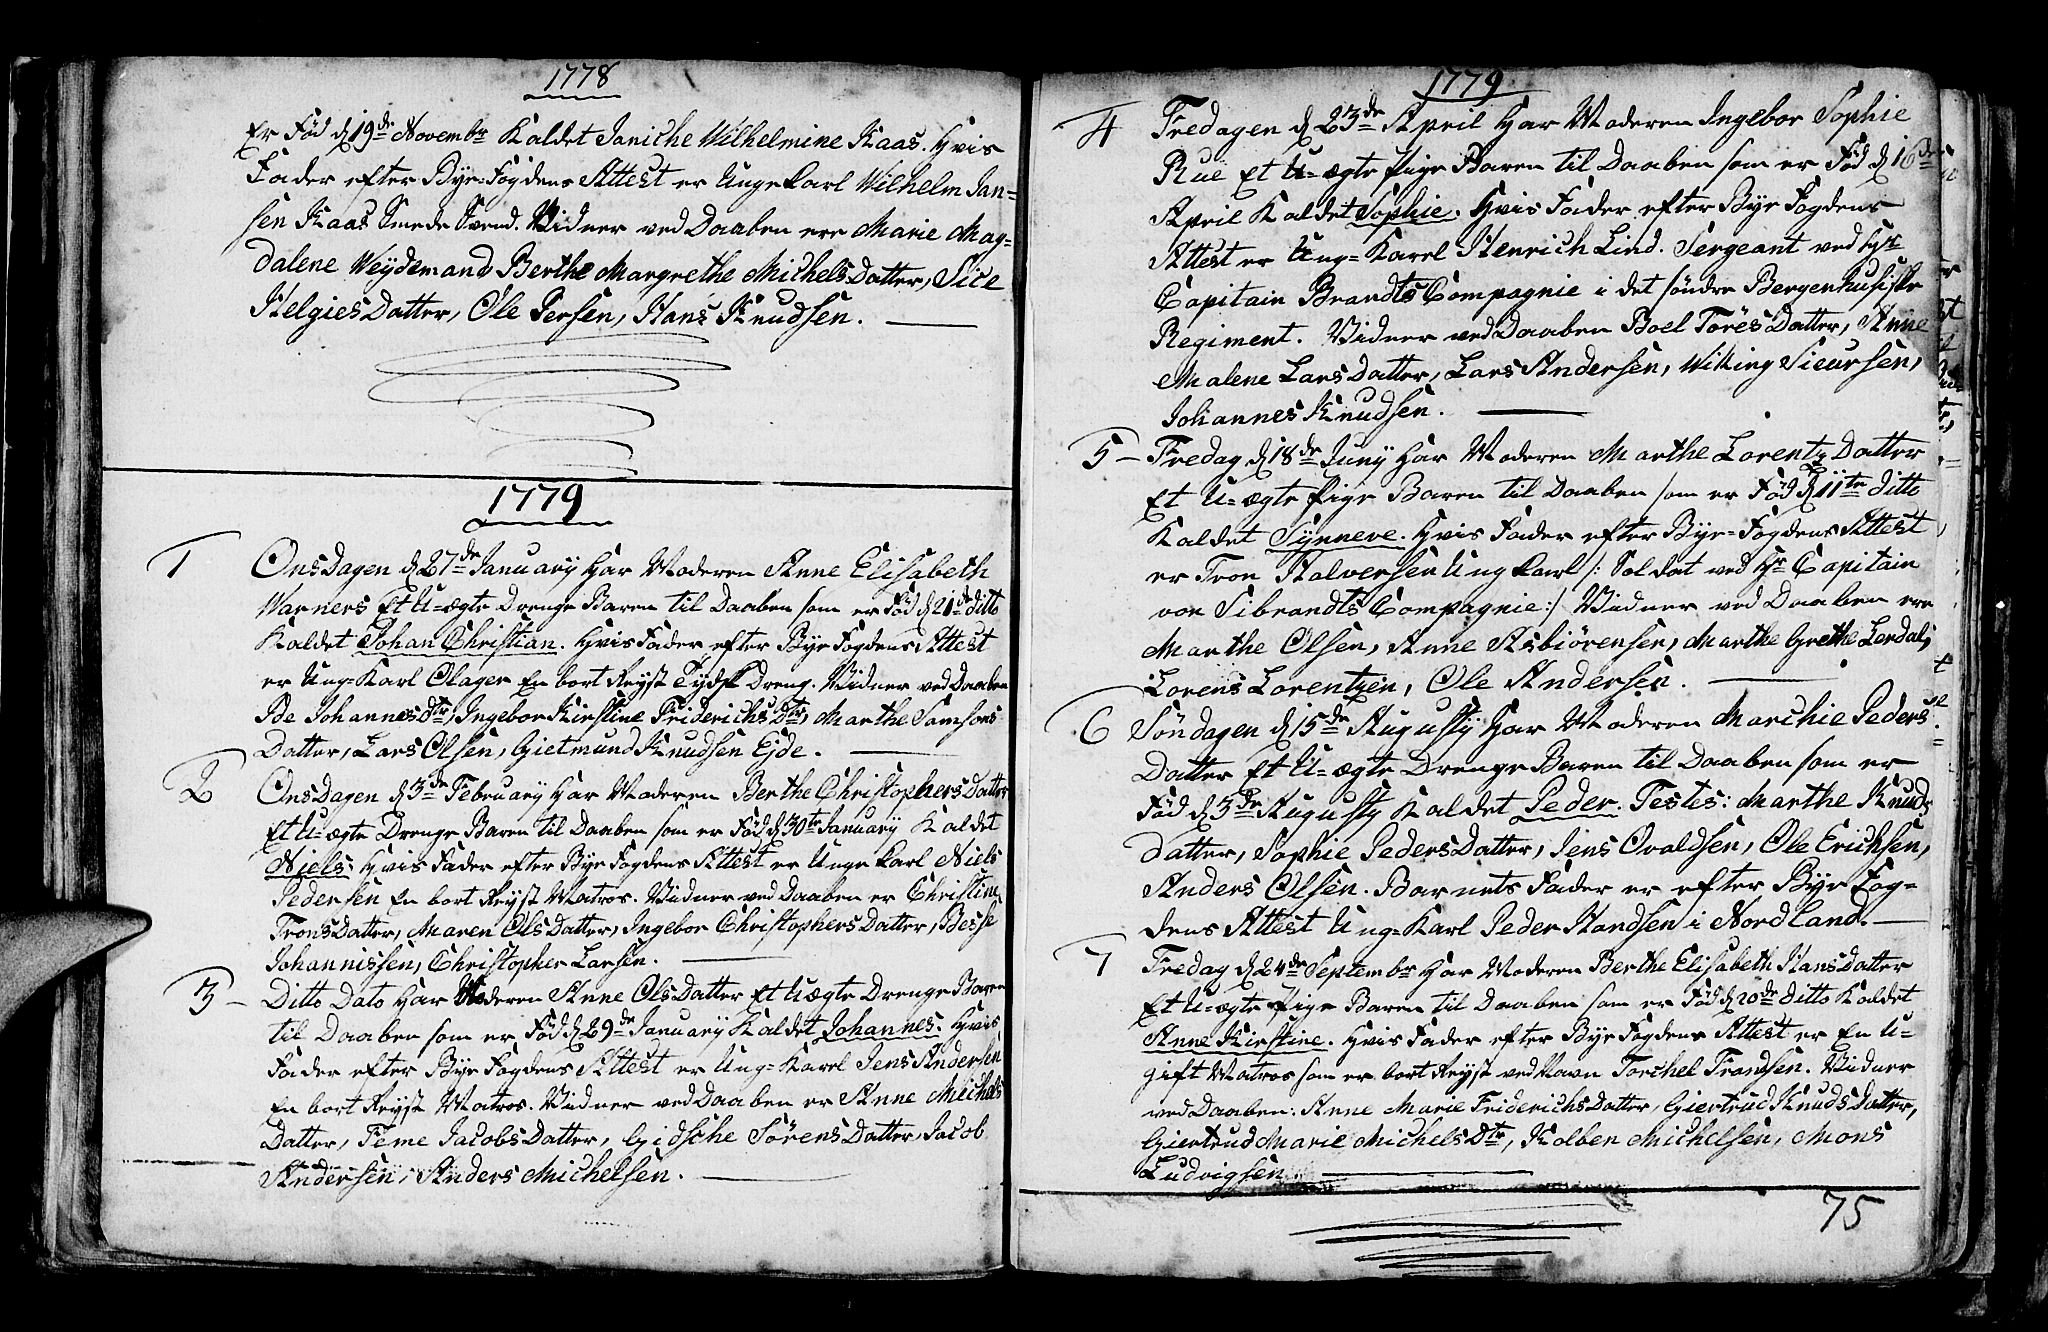 1778
Er Fød d 19de Novembr Kaldet Janiche Wilhelmine Kaas. Hvis
Fader efter Bye-Fogdens Attest er Unge Karl Wilhelm Jan-
sen Kaas Smede Svend. Vidner ved Daaben ere Marie Mag-
dalene Weydemand Berthe Margrethe Michels Datter, Sice
Helgies Datter, Ole Persen, Hans Knudsen.
1779
1 Onsdagen d 27de January Har Moderen Anne Elisabeth
Warners Et U-ægte Drenge Baren til Daaben som er Fød d 21de ditto
Kaldet Johan Christian. Hvis Fader efter Bye Fogdens Attest
er Ung-Karl Olager En bort Reyst Tydsk Dreng. Vidner ved Daaben
Johannes dtr, Ingebor Kirstine Friderichs Dtr, Marthe Samsons
Datter, Lars Olsen, Gietmund Knudsen Ejde.
2 Onsdagen d 3de February Har Moderen Berthe Christophers Datter
Et U-ægte Drenge Baren til Daaben som er Fød d 30te January Kaldet
Niels. Hvis Fader efter Bye Fogdens Attest er Unge Karl Niels
Pedersen En bort Reyst Matros. Vidner ved Daaben er Christine
Trons Datter, Maren Ols Datter, Ingebor Christophers Datter, Besse
Johannissen, Christopher Larsen.
3 - Ditto Dato Har Moderen Anne Ols Datter Et Uægte Drenge Baren
til Daaben som er Fød d 29de January Kaldet Johannes. Hvis
Fader efter Bye Fogdens Attest er Ung-Karl Jens Andersen
En bort Reyst Matros. Vidner ved Daaben er Anne Michels
Datter, Teme Jacobs Datter, Gidsche Sørens Datter, Jacob
Andersen, Anders Michelsen.
1779
4 Fredagen d 23de April Har Moderen Ingebor Sophie
Rue Et U-ægte Pige Baren til Daaben som er Fød d 16de
April Kaldet Sophie. Hvis Fader efter Bye Fogdens
Attest er Ung-Karl Henrich Lind. Sergeant ved Hr
Capitain Brandts Compagnie i det søndre Bergenhusiske
Regiment. Vidner ved Daaben Boel Tores Datter, Anne
Malene Lars Datter, Lars Andersen, Willing Sieursen,
Johannes Knudsen.
5 - Fredag d 18de Juny Har Moderen Marthe Lorentz Datter
Et U-ægte Pige Baren til Daaben som er Fød d 11te ditto
Kaldet Synneve. Hvis Fader efter Bye-Fogdens Attest
er Tron Halversen Ung Karl /: Soldat ved Hr Capitain
von Sibrandts Compagnie :/ Vidner ved Daaben ere
Marthe Olsen, Anne Asbiørensen, Marthe Grethe Lerdal,
Lorens Lorentzen, Ole Andersen.
6 Søndagen d 15de Augusty Har Moderen Marchie Peders
Datter Et U-ægte Drenge Baren til Daaben som er
Fød d 3de Augusty Kaldet Peder. Testes: Marthe Knuds
Datter, Sophie Peders Datter, Jens Ovaldsen, Ole Erichsen,
Anders Olsen. Barnets Fader er efter Bye Fog-
dens Attest Ung-Karl Peder Handsen i Nordland.
7 Fredag d 24de Septembr Har Moderen Berthe Elisabeth Hans Datter
Et U-ægte Pige Baren til Daaben som er Fød d 20de ditto Kaldet
Anne Kirstine. Hvis Fader efter Bye Fogdens Attest er En U-
gift Matros som er bort Reyst ved Navn Torchel Trondsen. Vidner
ved Daaben: Anne Marie Friderichs Datter, Giertrud Knuds Datter,
Giertrud Marie Michels Dtr, Kolben Michelsen, Mons
Ludvigsen.
75